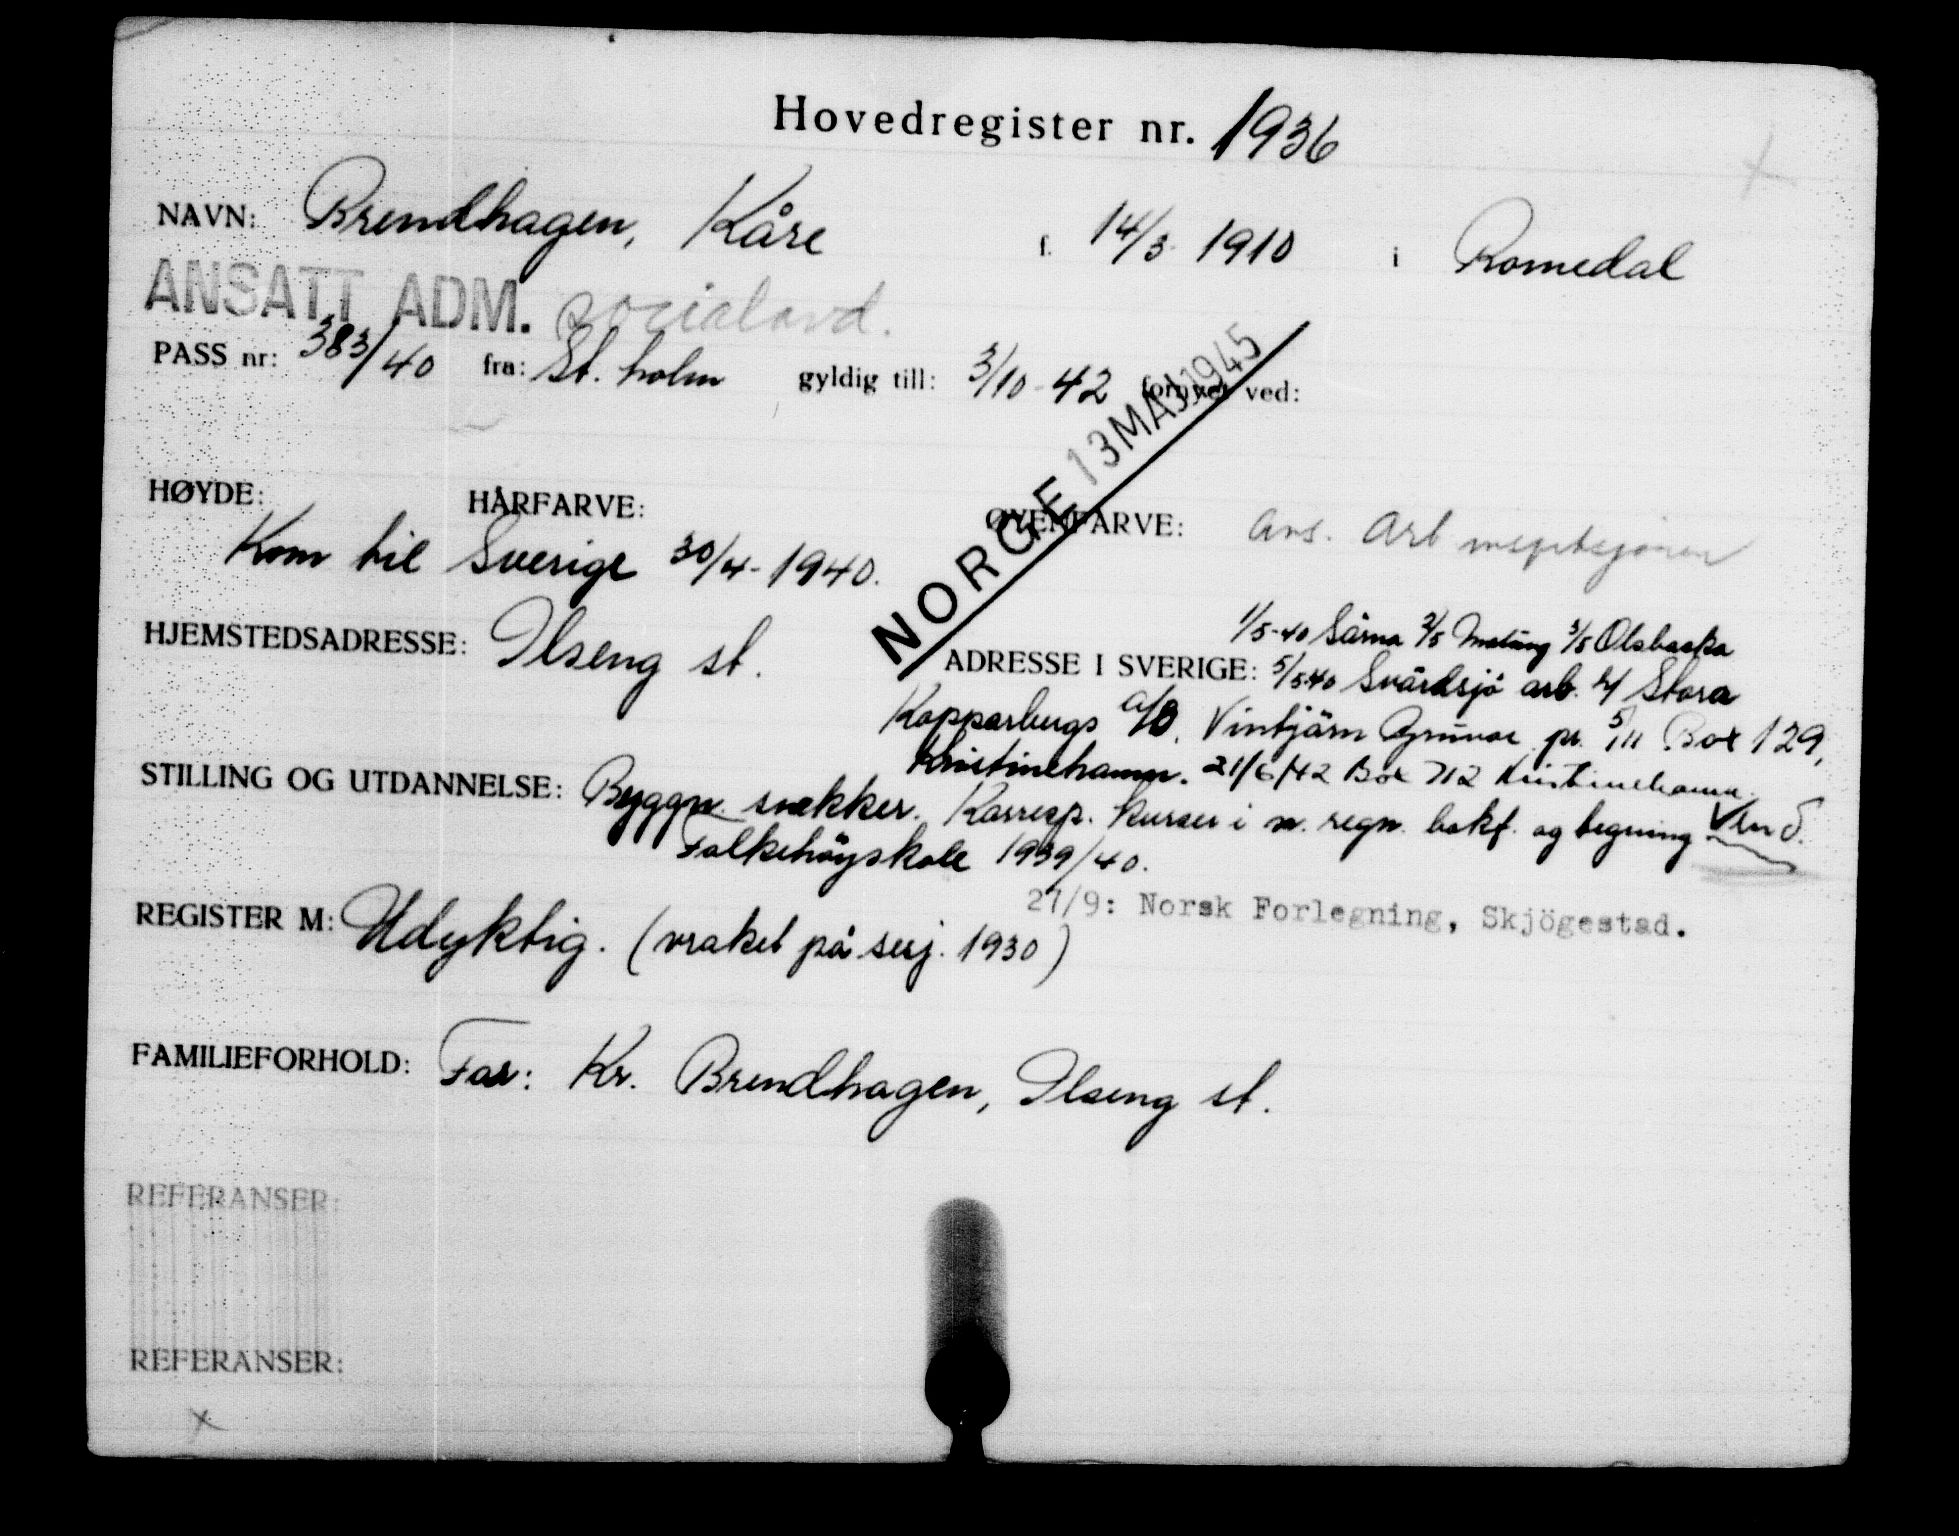 Hovedregister nr. 1936
NAVN: Brendhagen, Kåre f. 14/3 1910 i Romedal
ANSATT ADM. socialavd.
PASS nr: 383/40 fra: St. holm gyldig till: 3/10-42 fornyet ved:
NORGE 13 MAJ 1945
HØYDE: HÅRFARVE: ØYENFARVE: ans. Arb
Kom til Sverige 30/4-1940.
HJEMSTEDSADRESSE: Ilseng st.
1/5-40 Särna 2/5 Malung 3/5
ADRESSE I SVERIGE: 5/5-40 Svärdsjö arb. v/ Stora
Kopparbergs A/B, Vintjärn Gruvor pr. 5/11 Box 129,
Kristinehamn. 21/6/42 Box 712 Kristinehamn.
STILLING OG UTDANNELSE: Byggn. snekker. Korresp. kurser i n. regn. bokf. og tegning
Folkehöyskole 1939/40.
27/9: Norsk Forlegning, Skjögestad.
REGISTER M: Udyktig. (vraket på sesj. 1930)
FAMILIEFORHOLD: Far: Kr. Brendhagen, Ilseng st.
REFERANSER:
REFERANSER: